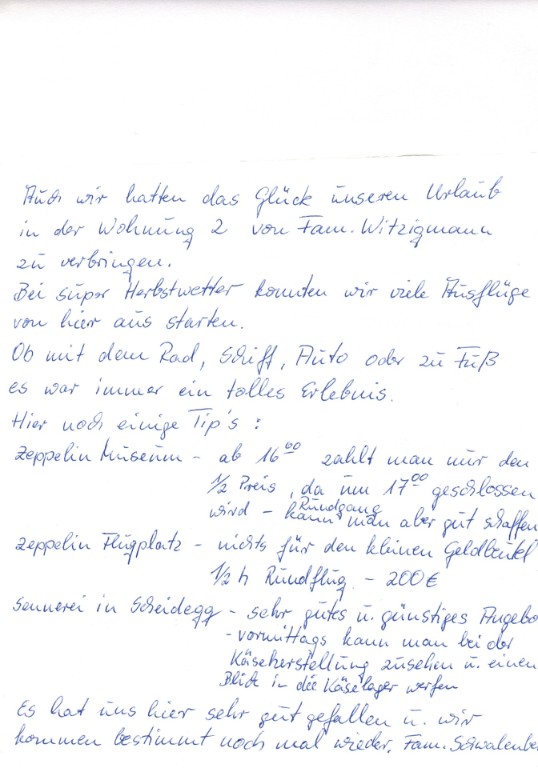 Auch wir hatten das Glück unseren Urlaub
in der Wohnung 2 von Fam. Witzigmann
zu verbringen.
Bei super Herbstwetter konnten wir viele Ausflüge
von hier aus starten.
Ob mit dem Rad, Schiff, Auto oder zu Fuß
es war immer ein tolles Erlebnis.
Hier noch einige Tip's :
Zeppelin Museum - ab 16⁰⁰ zahlt man nur den
1/2 Preis, da um 17⁰⁰ geschlossen
wird - Rundgang kann man aber gut schaffen
Zeppelin Flugplatz - nichts für den kleinen Geldbeutel
1/2 h Rundflug - 200€
Sennerei in Scheidegg - sehr gutes u. günstiges Angebo
- vormittags kann man bei der
Käseherstellung zusehen u. einen
Blick in die Käselager werfen
Es hat uns hier sehr gut gefallen u. wir
kommen bestimmt noch mal wieder. Fam. Schwalenbe